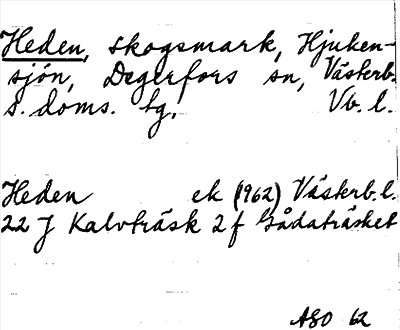 Heden, skogsmark, Hjuken-
sjön, Degerfors sn, Västerb.
s. doms. tg, Vb. l.
Heden ek (1962) Västerb. l.
22 J Kalvträsk 2 f Gådaträsket
ASO 62